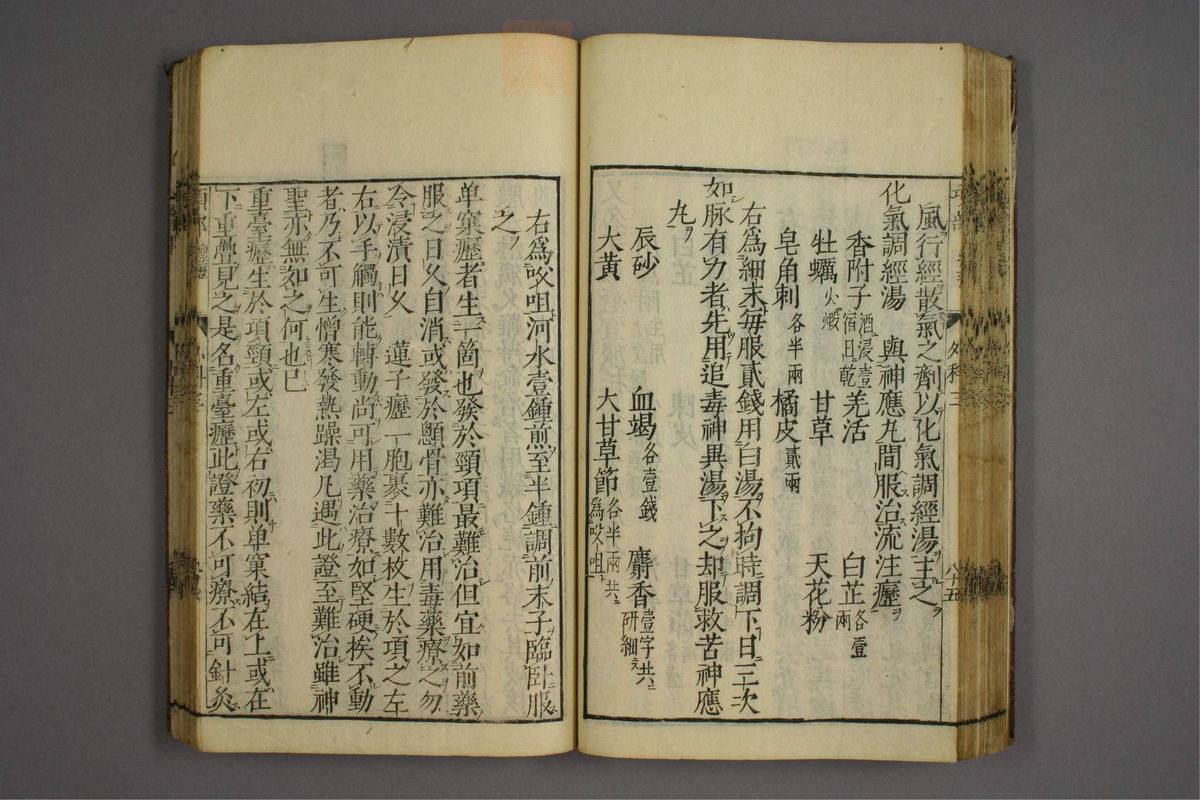 風行經散氣之劑以化氣調經湯主之
化氣調經湯 與神應丸間服治流注癧
香附子酒浸壹宿且乾 羌活 白芷各壹兩
牡蠣火煅 甘草 天花粉
皂角刺各半兩 橘皮貳兩
右爲細末每服貳錢用白湯不拘時調下日三次
如脉有力者先用追毒神異湯下之却服救苦神應
丸
辰砂 血竭各壹錢 麝香壹字共研細
大黃 大甘草節各半兩共爲㕮咀
右爲㕮咀河水壹鍾煎至半鍾調前末子臨臥服
之
單窠癧者生一箇也發於頸項最難治但宜如前藥
服之日久自消或發於顋骨亦難治用毒藥齊之勿
令浸漬日久 蓮子癧一胞裹十數枚生於項之左
右以手觸則能轉動尚可用藥治療如堅硬挨不動
者乃不可生憎寒發熱躁渴凡遇此證至難治雖神
聖亦無如之何也巳
重臺癧生於項頸或左或右初則單窠結在上或在
下重疊見之是名重臺癧此證藥不可療不可針灸